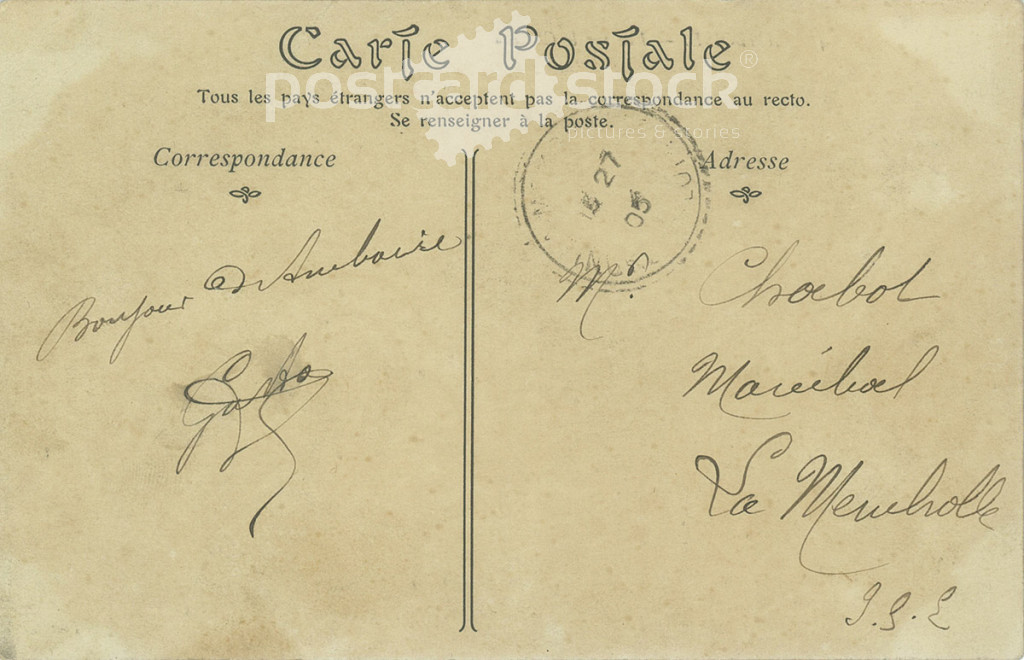 Carte Postale
postcard stock®
pictures & stories
Tous les pays étrangers n'acceptent pas la correspondance au recto.
Se renseigner à la poste.
Correspondance
Adresse
27
05
Bonjour d'Amboise
Mr Chabot
Maréchal
La Membrolle
I. & L